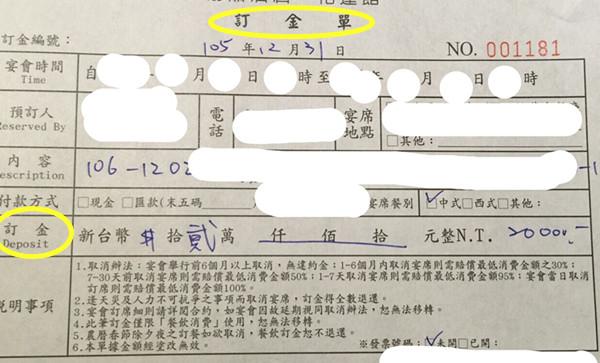 訂金單
訂金編號： 105年12月31日 NO. 001181
宴會時間 Time 自 月 日 時至 年 月 日 時
預訂人 Reserved By 電話 宴席地點 □其他：
內容 Description 106-1202
付款方式 □現金 □匯款(末五碼 宴席餐別 ☑中式□西式□其他：
訂金 Deposit 新台幣 $ 拾貳萬 仟 佰 拾 元整N.T. 20000.-
說明事項
1.取消辦法：宴會舉行前6個月以上取消，無違約金；1-6個月內取消宴席則需賠償最低消費金額之30%；
7-30天前取消宴席則需賠償最低消費金額50%；1-7天取消宴席則需賠償最低消費金額95%；宴會當日取消
訂席則需賠償最低消費金額100%。
2.逢天災及人力不可抗爭之事項而取消宴席，訂金得全數退還。
3.宴會訂席細則請詳閱合約，如宴會因故延期視同取消辦法，恕無法移轉。
4.此筆訂金僅限「餐飲消費」使用，恕無法移轉。
5.農曆春節除夕夜之訂餐如欲取消，餐飲訂金恕不退還。
6.本單據金額經塗改無效。
※發票號碼：☑未開□已開：